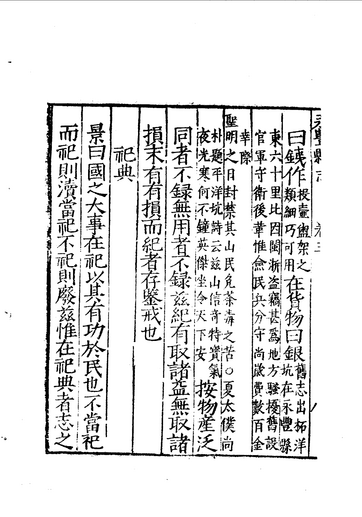 曰錢作
類細巧可用
在貨物曰銀
舊志出拓洋
坑在永豐縣
東六十里比因閩浙盜竊甚為地方騷擾舊設
官軍守衛後革惟僉民兵分守尚歲費數百金
幸際
聖明之日封禁其山民免荼毒之苦○夏太僕尚
朴題平洋坑詩云茲山信奇特寶氣
夜光寒何不鐘英傑坐令天下安
按物產泛
同者不錄無用者不錄茲紀有取諸益無取諸
損末有有損而紀者存鑒戒也
祀典
景曰國之大事在祀以其有功於民也不當祀
而祀則瀆當祀不祀則廢茲惟在祀典者志之